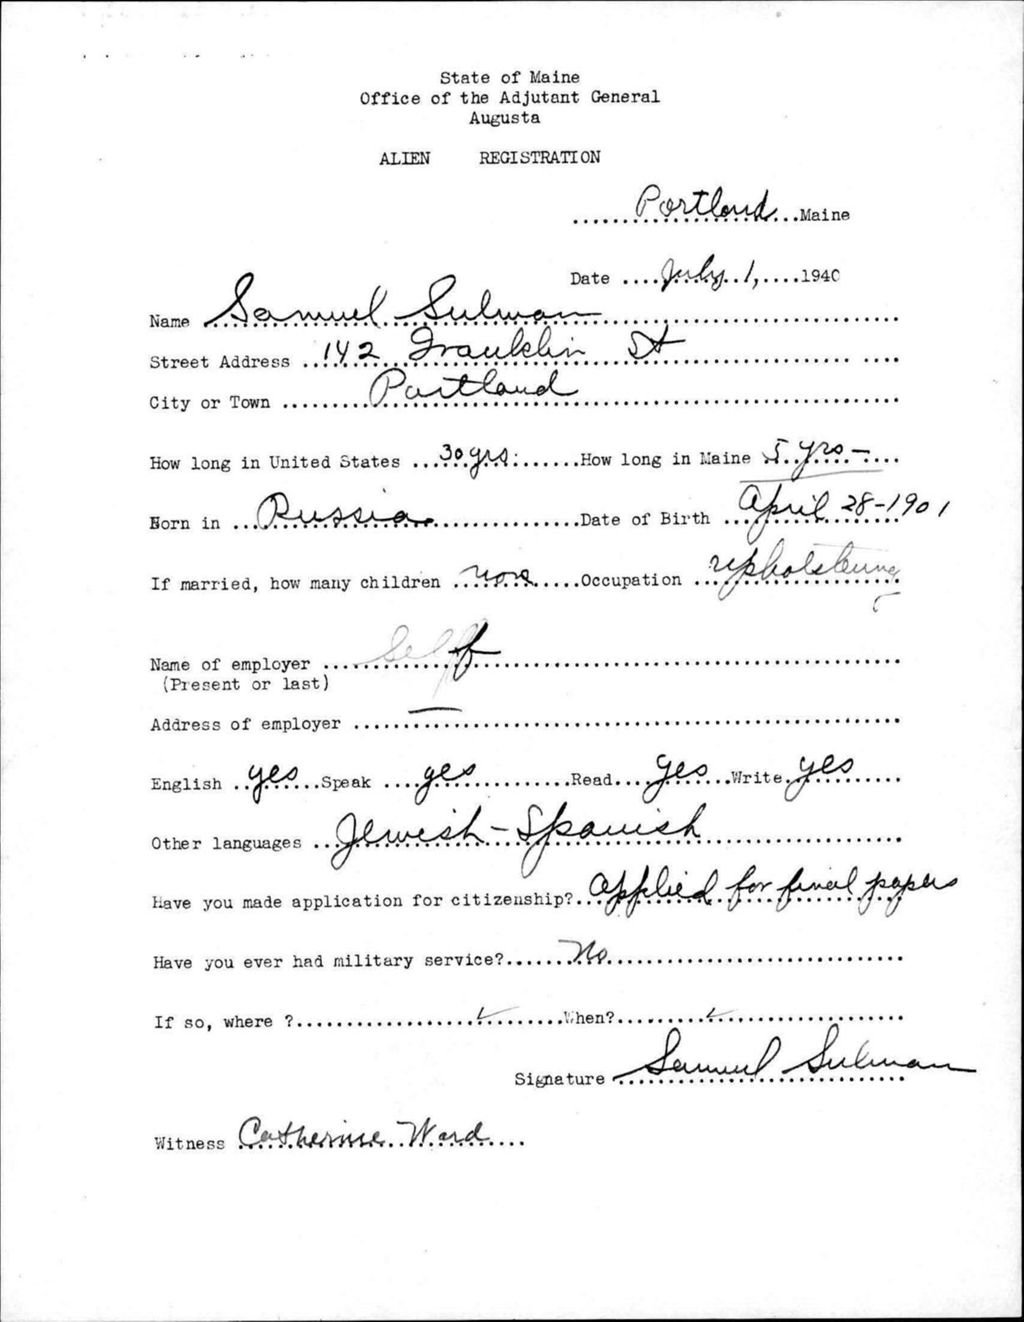 State of Maine
Office of the Adjutant General
Augusta
ALIEN REGISTRATION
Portland Maine
Date July 1, 1940
Name Samuel Sulman
Street Address 142 Franklin St
City or Town Portland
How long in United States 30 yrs. How long in Maine 5 yrs—
Born in Russia Date of Birth April 28-1901
If married, how many children none Occupation upholstering
Name of employer Self
(Present or last)
Address of employer —
English yes Speak yes Read yes Write yes
Other languages Jewish-Spanish
Have you made application for citizenship? Applied for final papers
Have you ever had military service? No
If so, where ? ✓ When? ✓
Signature Samuel Sulman
Witness Catherine Ward